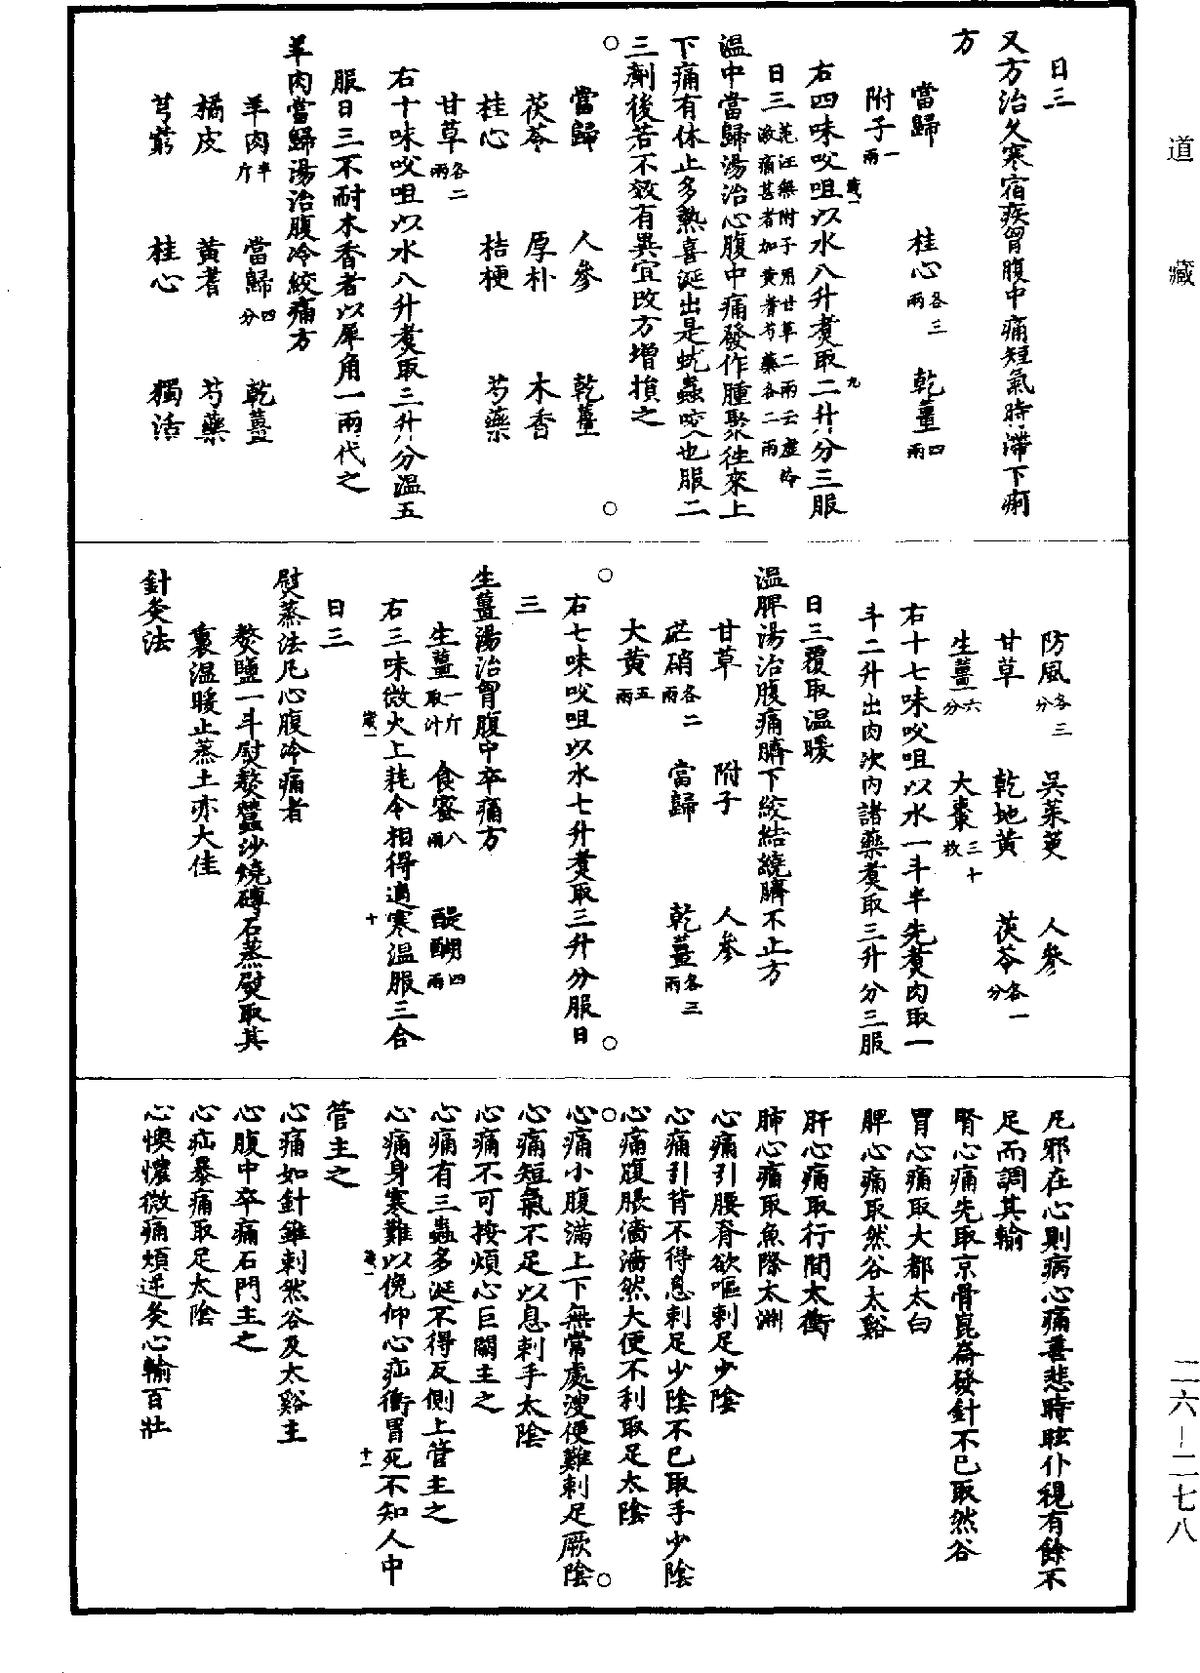 道藏
二六—二七八
日三
又方治久寒宿疾胷腹中痛短氣時滯下痢
方
當歸 桂心各三兩 乾薑四兩
附子一兩
右四味㕮咀以水八升煑取二升分三服
歲一 九
日三范汪無附子用甘草二兩云虛冷激痛甚者加黄耆芍藥各二兩
溫中當歸湯治心腹中痛發作腫聚往來上
下痛有休止多熱喜涎出是蚘蟲咬也服二
三劑後若不效有異宜改方增損之
當歸 人參 乾薑
茯苓 厚朴 木香
桂心 桔梗 芍藥
甘草各二兩
右十味㕮咀以水八升煑取三升分溫五
服日三不耐木香者以犀角一兩代之
羊肉當歸湯治腹冷絞痛方
羊肉半斤 當歸四分 乾薑
橘皮 黄耆 芍藥
芎藭 桂心 獨活
防風各三分 吳茱萸 人參
甘草 乾地黄 茯苓各一分
生薑六分 大棗三十枚
右十七味㕮咀以水一斗半先煑肉取一
斗二升出肉次内諸藥煑取三升分三服
日三覆取溫暖
溫脾湯治腹痛臍下絞結繞臍不止方
甘草 附子 人參
芒硝各二兩 當歸 乾薑各三兩
大黄五兩
右七味㕮咀以水七升煑取三升分服日
三
生薑湯治胷腹中卒痛方
生薑一斤取汁 食蜜八兩 醍醐四兩
右三味微火上耗令相得適寒溫服三合
歲一 十
日三
熨蒸法凡心腹冷痛者
熬鹽一斗熨熬蠶沙燒磚石蒸熨取其
裏溫暖止蒸土亦大佳
針灸法
凡邪在心則病心痛喜悲時眩仆視有餘不
足而調其輸
腎心痛先取京骨崑崙發針不已取然谷
胃心痛取大都太白
脾心痛取然谷太谿
肝心痛取行間太衝
肺心痛取魚際太淵
心痛引腰脊欲嘔刺足少陰
心痛引背不得息刺足少陰不已取手少陰
心痛腹脹濇濇然大便不利取足太陰
心痛小腹滿上下無常處溲便難刺足厥陰
心痛短氣不足以息刺手太陰
心痛不可按煩心巨闕主之
心痛有三蟲多涎不得反側上管主之
心痛身寒難以俛仰心疝衝冒死不知人中
歲一 十一
管主之
心痛如針錐刺然谷及太谿主
心腹中卒痛石門主之
心疝暴痛取足太陰
心懊憹微痛煩逆灸心輸百壯